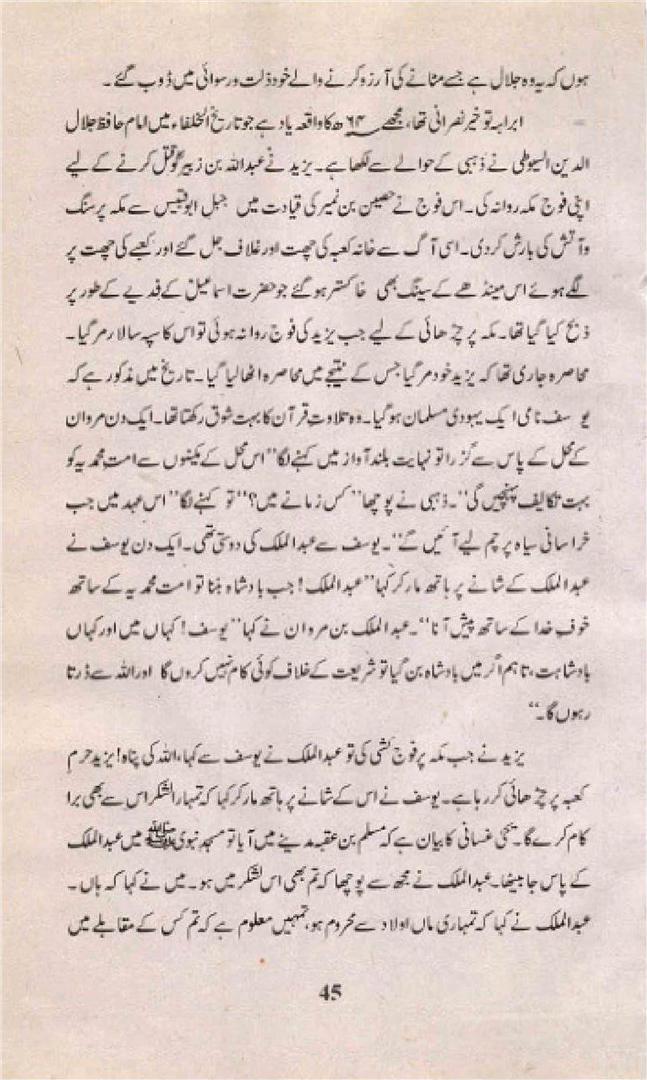 ہوں کہ یہ وہ جلال ہے جسے مٹانے کی آرزو کرنے والے خود ذلت ورسوائی میں ڈوب گئے ۔
ابرہہ تو خیر نصرانی تھا، مجھے ۶۴ھ کا واقعہ یاد ہے جو تاریخ الخلفاء میں امام حافظ جلال
الدین السیوطی نے ذہبی کے حوالے سے لکھا ہے۔ یزید نے عبداللہ بن زبیرؓ کو قتل کرنے کے لیے
اپنی فوج مکہ روانہ کی۔ اس فوج نے حصین بن نمیر کی قیادت میں جبل ابوقبیس سے مکہ پر سنگ
وآتش کی بارش کردی۔ اسی آگ سے خانہ کعبہ کی چھت اور غلاف جل گئے اور کعبے کی چھت پر
لگے ہوئے اس مینڈھے کے سینگ بھی خاکستر ہوگئے جو حضرت اسماعیلؑ کے فدیے کے طور پر
ذبح کیا گیا تھا۔ مکہ پر چڑھائی کے لیے جب یزید کی فوج روانہ ہوئی تو اس کا سپہ سالار مرگیا۔
محاصرہ جاری تھا کہ یزید خود مر گیا جس کے نتیجے میں محاصرہ اٹھا لیا گیا۔ تاریخ میں مذکور ہے کہ
یوسف نامی ایک یہودی مسلمان ہوگیا۔ وہ تلاوتِ قرآن کا بہت شوق رکھتا تھا۔ ایک دن مروان
کے محل کے پاس سے گزرا تو نہایت بلند آواز میں کہنے لگا ”اس محل کے مکینوں سے امتِ محمدیہ کو
بہت تکالیف پہنچیں گی“۔ ذہبی نے پوچھا ”کس زمانے میں؟“ تو کہنے لگا ”اس عہد میں جب
خراسانی سیاہ پرچم لیے آئیں گے“۔ یوسف سے عبدالملک کی دوستی تھی۔ ایک دن یوسف نے
عبدالملک کے شانے پر ہاتھ مار کر کہا ”عبدالملک! جب بادشاہ بننا تو امت محمدیہ کے ساتھ
خوفِ خدا کے ساتھ پیش آنا“۔ عبدالملک بن مروان نے کہا ”یوسف! کہاں میں اور کہاں
بادشاہت، تاہم اگر میں بادشاہ بن گیا تو شریعت کے خلاف کوئی کام نہیں کروں گا اور اللہ سے ڈرتا
رہوں گا۔“
یزید نے جب مکہ پر فوج کشی کی تو عبدالملک نے یوسف سے کہا، اللہ کی پناہ! یزید حرمِ
کعبہ پر چڑھائی کررہا ہے۔ یوسف نے اس کے شانے پر ہاتھ مار کر کہا کہ تمہارا لشکر اس سے بھی برا
کام کرے گا۔ یحییٰ غسانی کا بیان ہے کہ مسلم بن عقبہ مدینے میں آیا تو مسجدِ نبوی ﷺ میں عبدالملک
کے پاس جا بیٹھا۔ عبدالملک نے مجھ سے پوچھا کہ تم بھی اس لشکر میں ہو۔ میں نے کہا کہ ہاں ۔
عبدالملک نے کہا کہ تمہاری ماں اولاد سے محروم ہو، تمہیں معلوم ہے کہ تم کس کے مقابلے میں
45